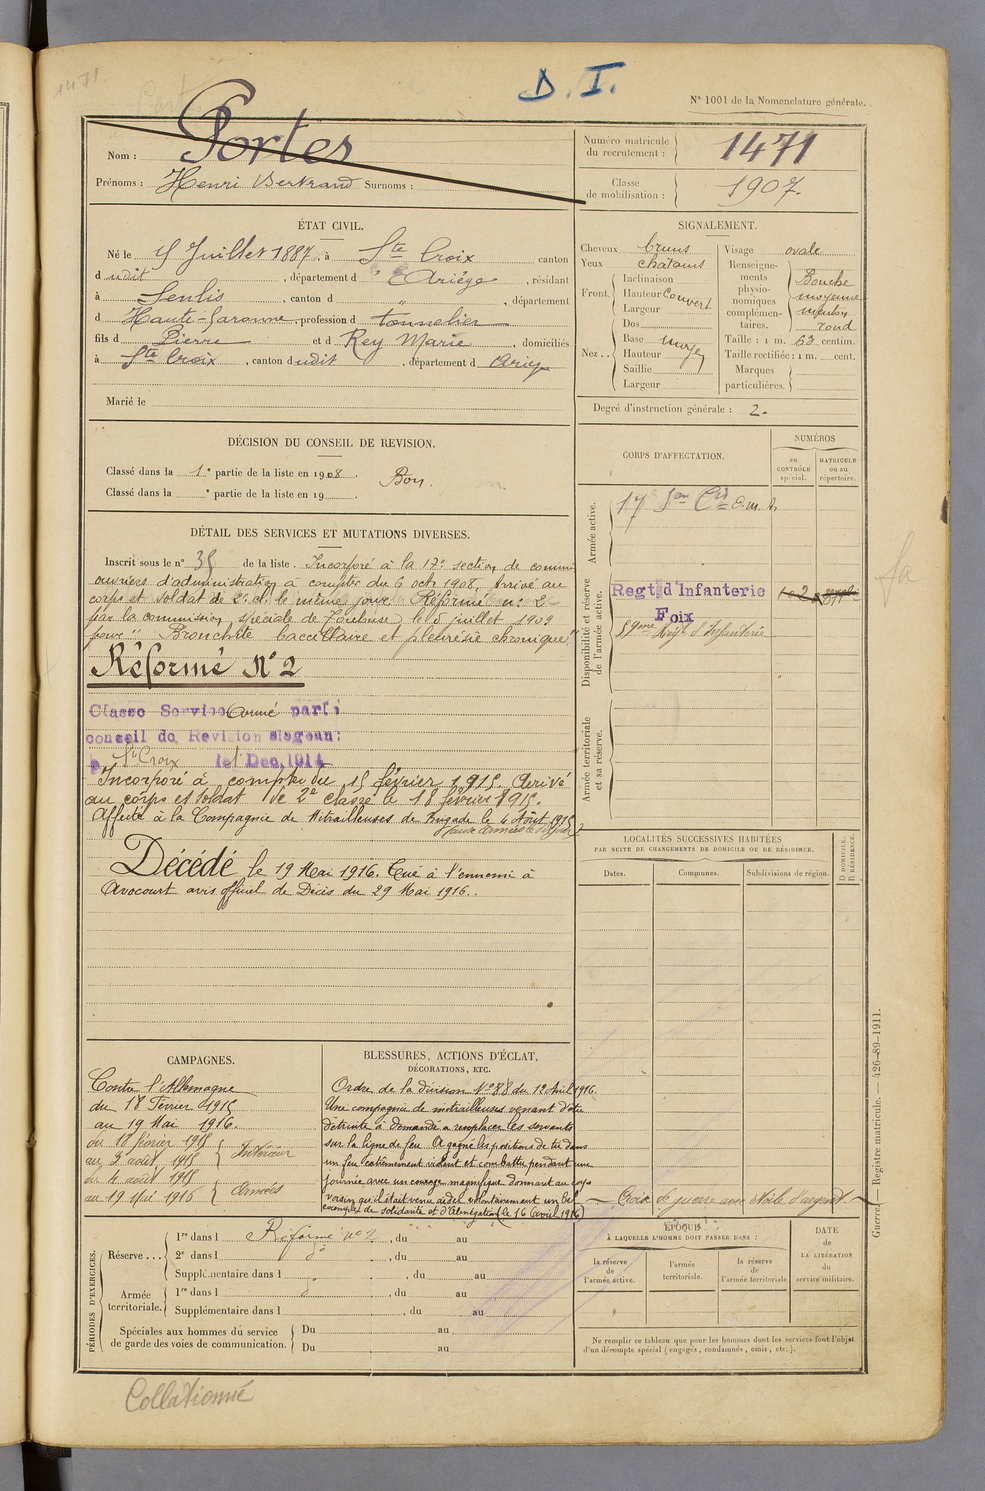 1471.
D. I.
N° 1001 de la Nomenclature générale.
Nom : Portes
Prénoms : Henri Bertrand Surnoms :
Numéro matricule du recrutement : 1471
Classe de mobilisation : 1907.
ÉTAT CIVIL.
Né le 5 Juillet 1887, à Ste Croix canton
d udit, département d Ariège, résidant
à Senlis, canton d ", département
d Haute-Garonne, profession d tonnelier
fils d Pierre et d Rey Marie, domiciliés
à Ste Croix, canton d udit, département d Ariège
Marié le
SIGNALEMENT.
Cheveux bruns
Yeux chatains
Front. Inclinaison
Hauteur Couvert
Largeur
Nez .. Dos
Base moyen
Hauteur
Saillie
Largeur
Visage ovale
Renseignements physionomiques complémentaires. Bouche moyenne menton rond
Taille : 1 m. 63 centim.
Taille rectifiée : 1 m. cent.
Marques particulières.
Degré d'instruction générale : 2.
DÉCISION DU CONSEIL DE REVISION.
Classé dans la 1e partie de la liste en 1908. Bon.
Classé dans la e partie de la liste en 19 .
DÉTAIL DES SERVICES ET MUTATIONS DIVERSES.
Inscrit sous le n° 35 de la liste. Incorporé à la 17e section de commis
ouvriers d'administration à compter du 6 oct 1908, arrivé au
corps et soldat de 2e cl. le même jour. Réformé n: 2
par la commission spéciale de Toulouse, le 5 juillet 1909
pour " Bronchite baccillaire et pleurésie chronique"
Réformé N° 2
Classé Service armé par le
conseil de Revision siégeant
à Ste Croix le 1 Dec. 1914
Incorporé à compter du 15 février 1915. Arrivé
au corps et soldat de 2e classe le 18 février 1915.
Affecté à la Compagnie de Mitrailleuses de Brigade le 4 Août 1915
Décédé le 19 Mai 1916. Tué à l'ennemi à
Avocourt avis officiel de Décès du 29 Mai 1916.
CORPS D'AFFECTATION.
NUMÉROS
au CONTRÔLE spécial.
MATRICULE ou au répertoire.
Armée active.
17 Son Cis O. m. A.
Disponibilité et réserve de l'armée active.
Regt d'Infanterie
Foix
59me Regt d'Infanterie
Armée territoriale et sa réserve.
LOCALITÉS SUCCESSIVES HABITÉES
PAR SUITE DE CHANGEMENTS DE DOMICILE OU DE RÉSIDENCE.
Dates.
Communes.
Subdivisions de région.
D DOMICILE.
R RÉSIDENCE.
CAMPAGNES.
Contre l'Allemagne
du 18 Février 1915
au 19 Mai 1916.
du 18 février 1915
au 3 août 1915 Intérieur
du 4 août 1915
au 19 Mai 1916 Armées
BLESSURES, ACTIONS D'ÉCLAT,
DÉCORATIONS, ETC.
Ordre de la division N° 88 du 12 Avril 1916.
Une compagnie de mitrailleuses venant d'être
détruite à demandé a remplacer les servants
sur la ligne de feu. A gagné les positions de tir dans
un feu extrêmement violent et combattu pendant une
journée avec un courage magnifique donnant au corps
voisin qu'il était venu aider volontairement un bel
exemple de solidarité et d'abnégation (le 16 Avril 1916)
Croix de guerre avec étoile d'argent
PÉRIODES D'EXERCICES.
Réserve ... 1re dans l Réformé n° 2, du au
2e dans l d°, du au
Supplémentaire dans l , du au
Armée territoriale. 1re dans l d°, du au
Supplémentaire dans l , du au
Spéciales aux hommes du service de garde des voies de communication. Du au
Du au
ÉPOQUE
À LAQUELLE L'HOMME DOIT PASSER DANS :
la réserve de l'armée active.
l'armée territoriale.
la réserve de l'armée territoriale
DATE de LA LIBÉRATION du service militaire.
Ne remplir ce tableau que pour les hommes dont les services font l'objet
d'un décompte spécial (engagés, condamnés, omis, etc.).
Guerre. — Registre matricule. — 426-89-1911.
Collationné